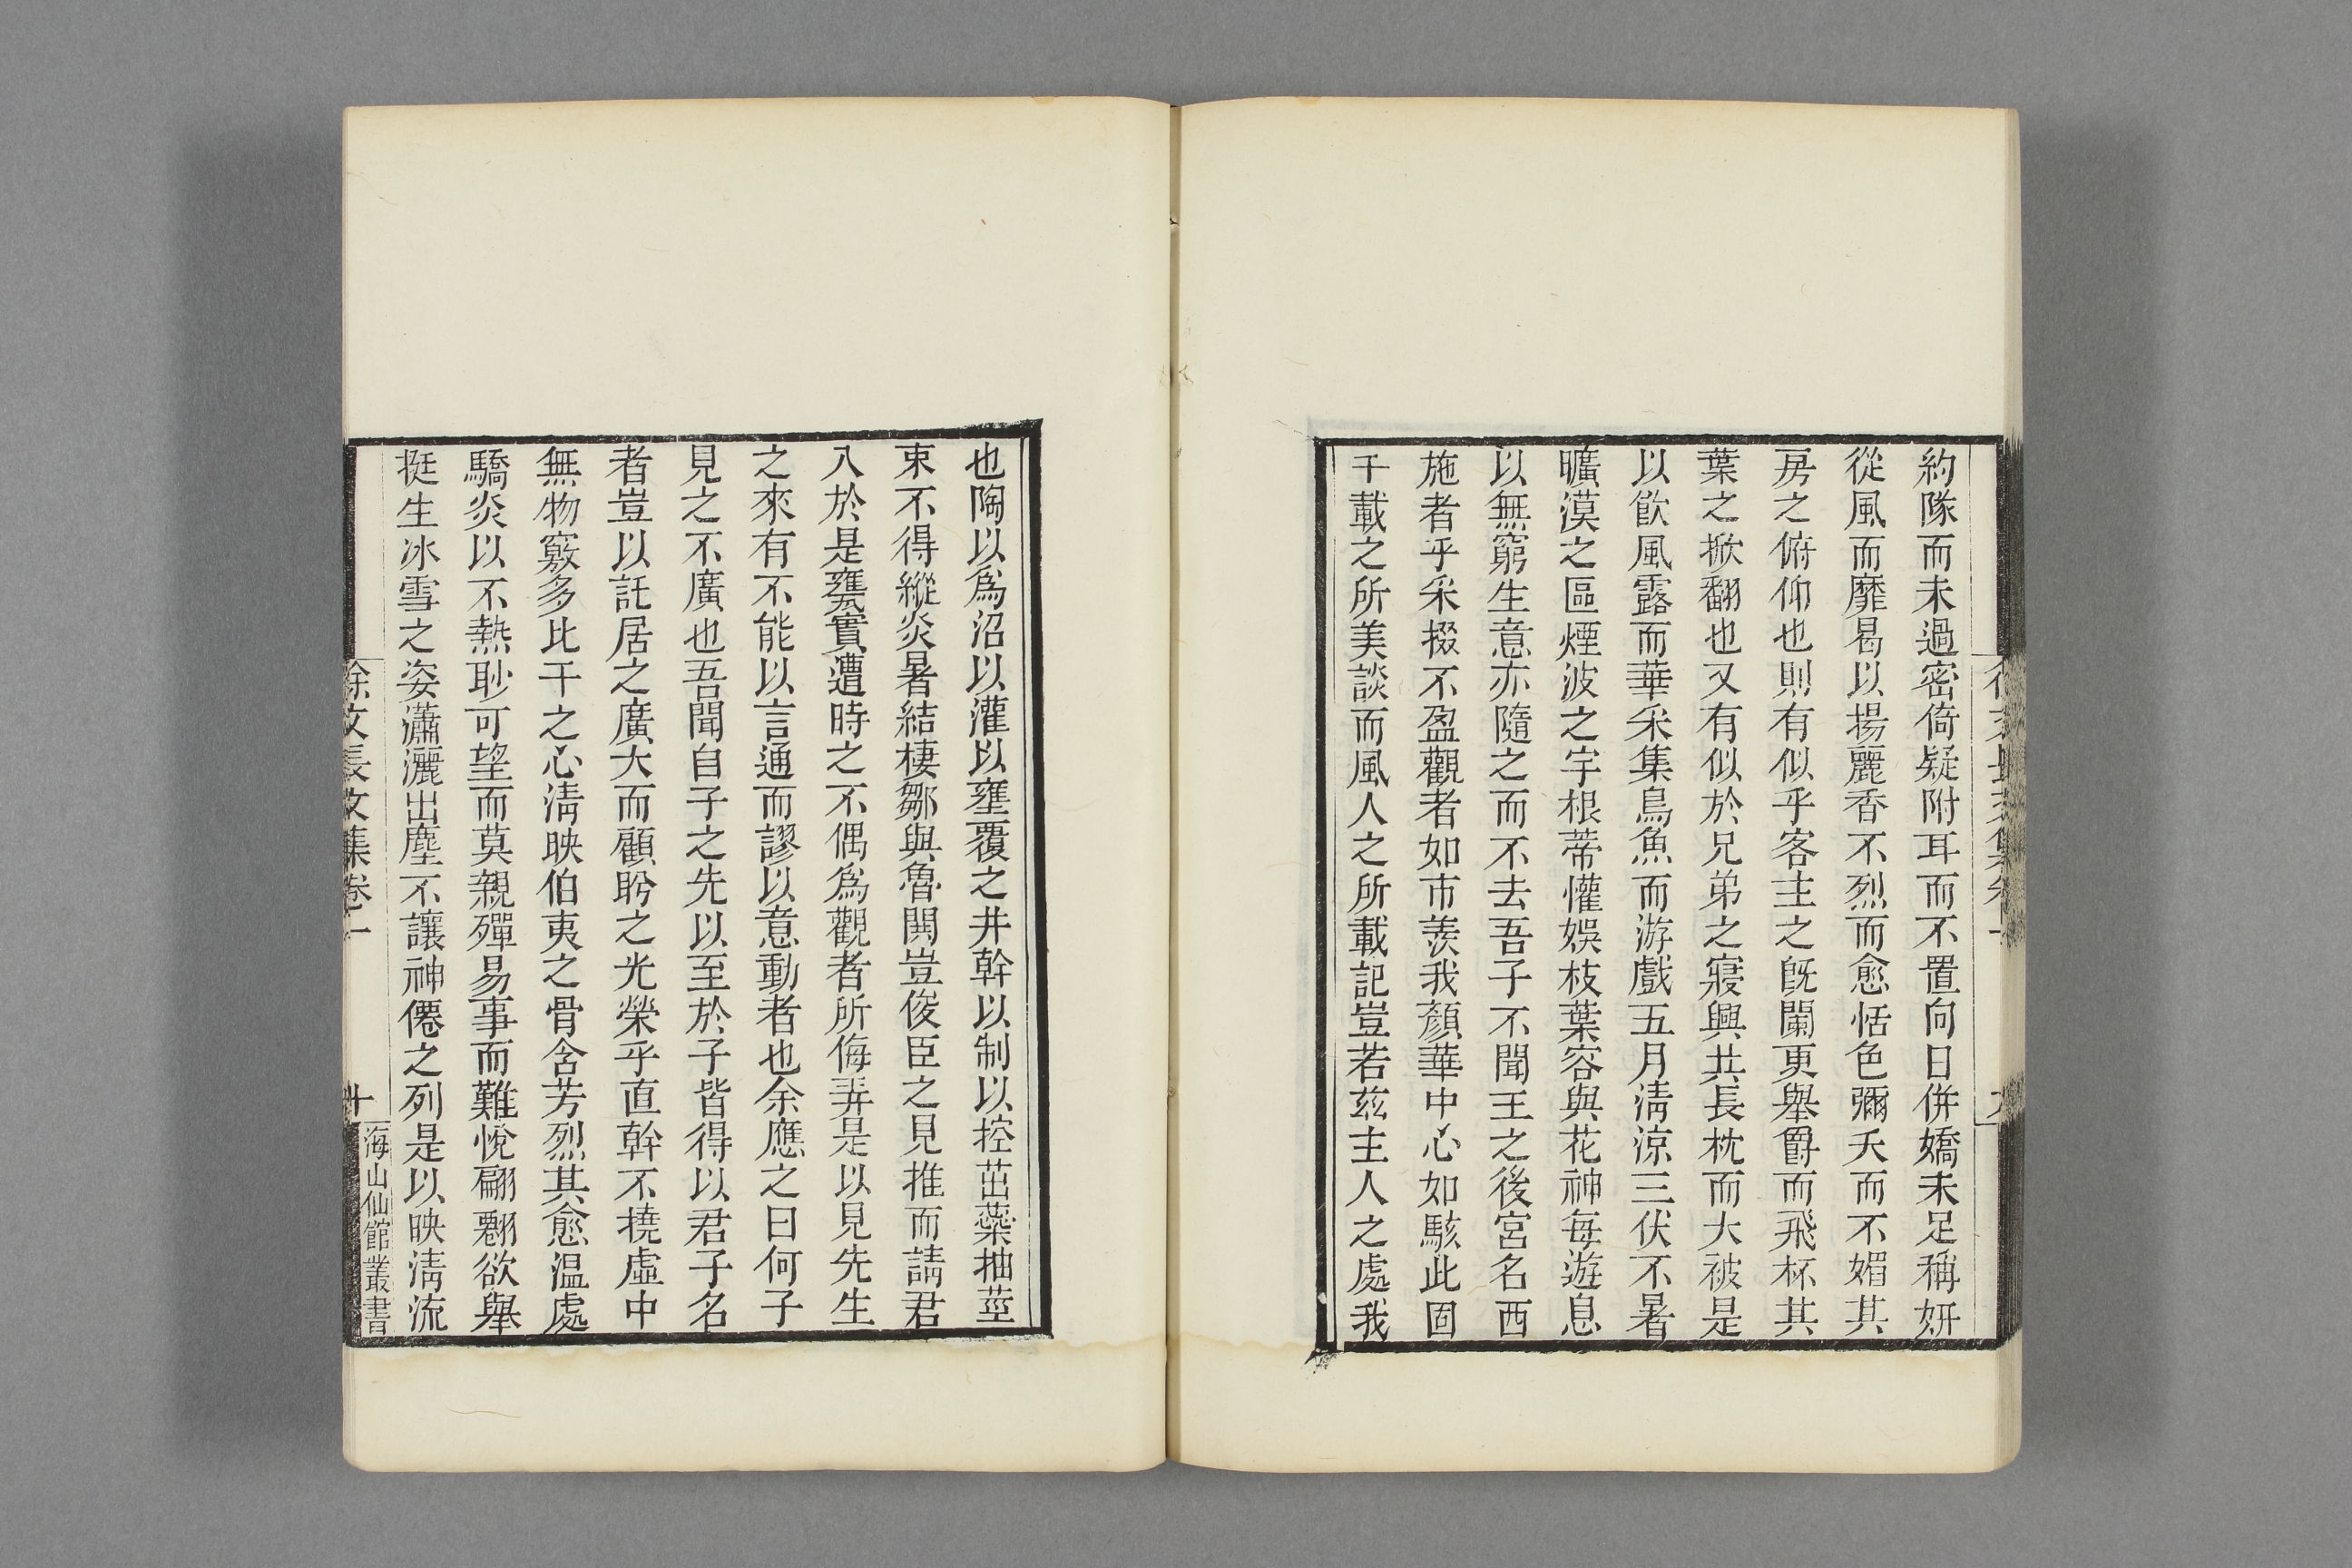 約隊而未過密倚疑附耳而不置向日併嬌未足稱妍
從風而靡曷以揚麗香不烈而愈恬色彌夭而不媚其
房之俯仰也則有似乎客主之旣闌更舉爵而飛杯其
葉之掀翻也又有似於兄弟之寢興共長枕而大被是
以飲風露而華采集鳥魚而游戲五月淸涼三伏不暑
曠漠之區煙波之宇根蒂懽娛枝葉容與花神每遊息
以無窮生意亦隨之而不去吾子不聞王之後宮名西
施者乎采掇不盈觀者如市羨我顏華中心如駭此固
千載之所美談而風人之所載記豈若茲主人之處我
也陶以爲沼以灌以壅覆之井幹以制以控茁蘂抽莖
束不得縱炎暑結棲鄒與魯閧豈俊臣之見推而請君
入於是甕實遭時之不偶爲觀者所侮弄是以見先生
之來有不能以言通而謬以意動者也余應之曰何子
見之不廣也吾聞自子之先以至於子皆得以君子名
者豈以託居之廣大而顧盻之光榮乎直幹不撓虛中
無物竅多比干之心淸映伯夷之骨含芳烈其愈温處
驕炎以不熱耿可望而莫親殫易事而難悅翩翻欲舉
挺生冰雪之姿瀟灑出塵不讓神僊之列是以映淸流
徐文長文集卷一
十
海山仙館叢書